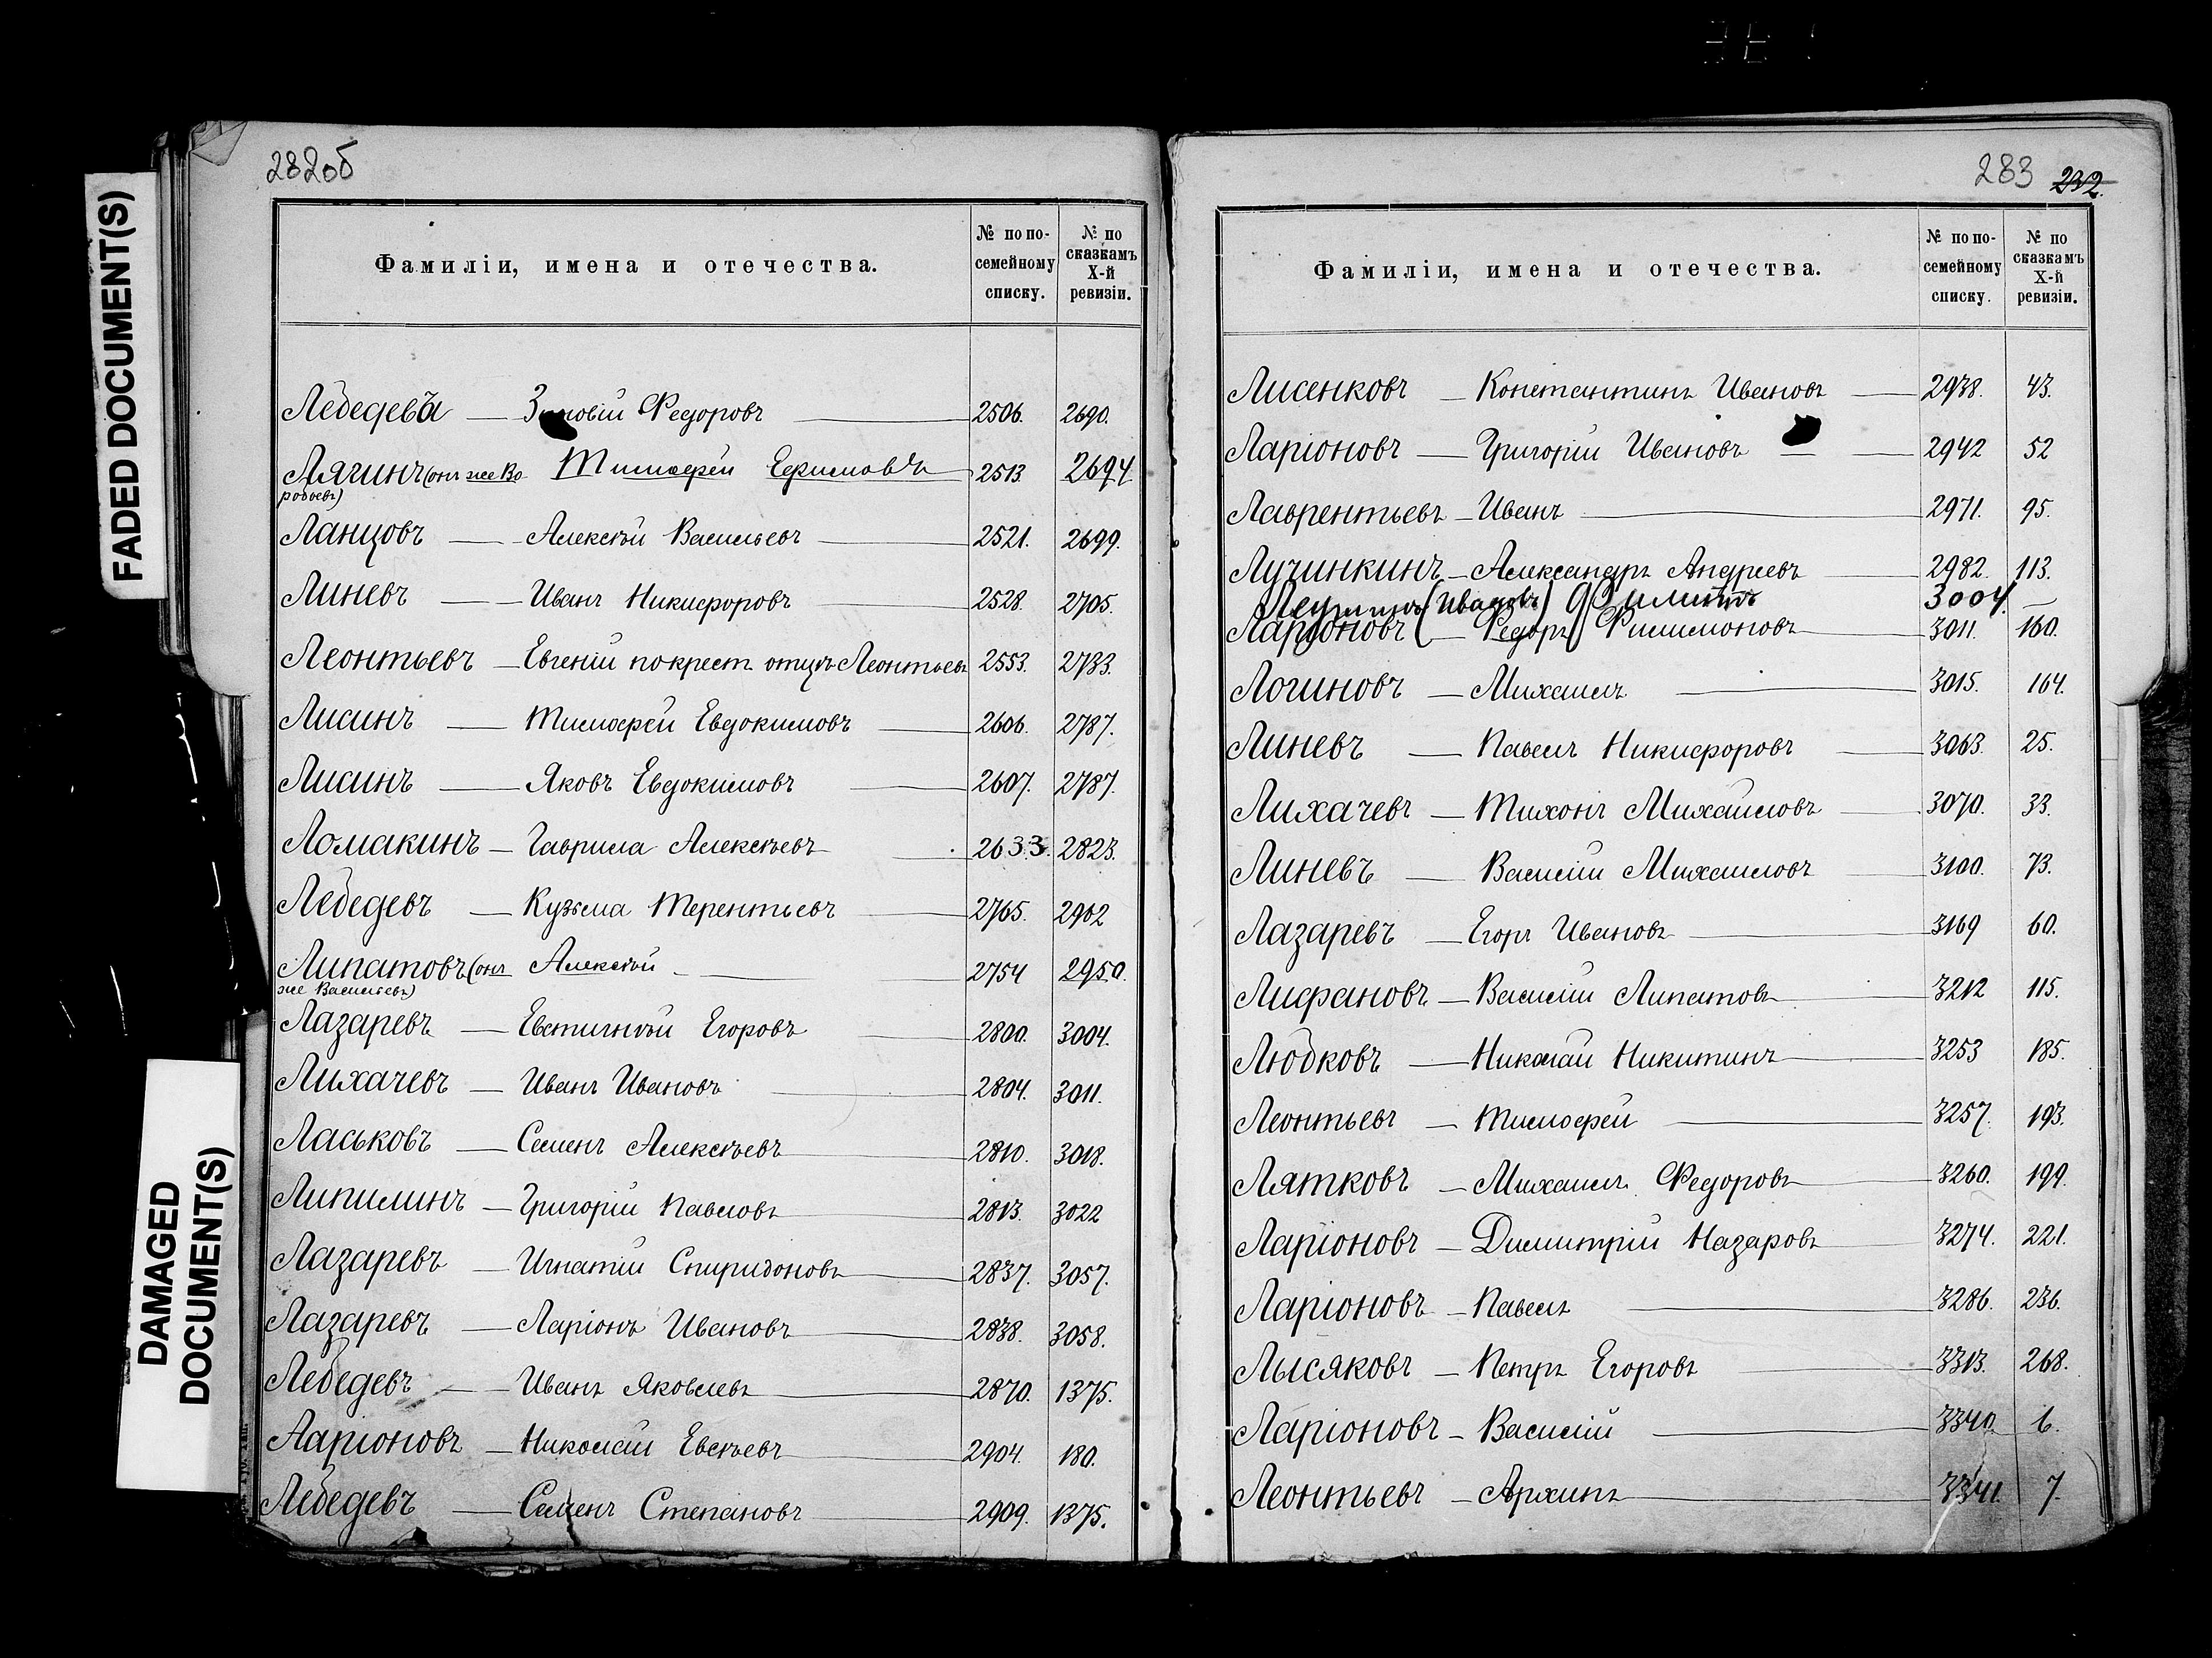 FADED DOCUMENT(S)
DAMAGED
DOCUMENT(S)
282об
Фамиліи, имена и отечества.
№ по по-
семейному
списку.
№ по
сказкамъ
X-й
ревизіи.
Лебедевъ — Зиновій Федоровъ — 2506. 2690.
Лягинъ (онъ же Во- Тимофей Ефимовъ 2513. 2694
робьевъ)
Ланцовъ — Алексѣй Васильевъ — 2521. 2699.
Линевъ — Иванъ Никифоровъ — 2528. 2705.
Леонтьевъ — Евгеній по крест. отцу Леонтьевъ 2553. 2733.
Лисинъ — Тимофей Евдокимовъ — 2606. 2787.
Лисинъ — Яковъ Евдокимовъ — 2607. 2787.
Ломакинъ — Гаврила Алексѣевъ — 2633. 2823.
Лебедевъ — Кузьма Терентьевъ — 2765. 2902
Липатовъ (онъ Алексѣй — 2754 2950.
же Васильевъ)
Лазаревъ — Евстигнѣй Егоровъ — 2800. 3004.
Лихачевъ — Иванъ Ивановъ — 2804. 3011.
Ласьковъ — Семенъ Алексѣевъ — 2810. 3018.
Липилинъ — Григорій Павловъ — 2813. 3022
Лазаревъ — Игнатій Спиридоновъ — 2837. 3057.
Лазаревъ — Ларіонъ Ивановъ — 2838. 3058.
Лебедевъ — Иванъ Яковлевъ — 2870. 1375.
Ларіоновъ — Николай Евсѣевъ — 2904. 180.
Лебедевъ — Семенъ Степановъ — 2909. 1375.
283 232.
Фамиліи, имена и отечества.
№ по по-
семейному
списку.
№ по
сказкамъ
X-й
ревизіи.
Лисенковъ — Константинъ Ивановъ — 2938. 43.
Ларіоновъ — Григорій Ивановъ — 2942 52
Лаврентьевъ — Иванъ — 2971. 95.
Лучинкинъ — Александръ Андреевъ — 2982. 113.
(Ивановъ) 3004. —
Ларіоновъ — Федоръ Филимоновъ — 3011. 160.
Логиновъ — Михаилъ — 3015. 164.
Линевъ — Павелъ Никифоровъ — 3063. 25.
Лихачевъ — Тихонъ Михайловъ — 3070. 33.
Линевъ — Василій Михайловъ — 3100. 73.
Лазаревъ — Егоръ Ивановъ — 3169 60.
Лифановъ — Василій Липатовъ — 3212 115.
Людковъ — Николай Никитинъ — 3253 185.
Леонтьевъ — Тимофей — 3257. 193.
Лятковъ — Михаилъ Федоровъ — 3260. 199.
Ларіоновъ — Димитрій Назаровъ — 3274. 221.
Ларіоновъ — Павелъ — 3286. 236.
Лысяковъ — Петръ Егоровъ — 3313. 268.
Ларіоновъ — Василій — 3340. 6.
Леонтьевъ — Архипъ — 3341. 7.